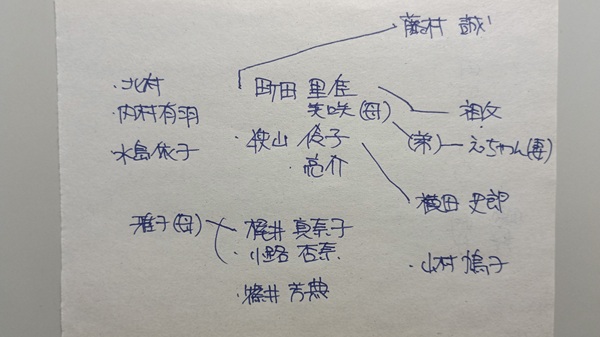 藤村 誠
・北村
町田 里佳
・内村有羽
笑咲(母)
祖父
・水島依子
・狭山 伶子
(弟)―えちゃん(妻)
・亮介
横田 史郎
雅子(母)
・梶井 真奈子
・小路 杏奈
・山村 鳩子
・梶井 芳典